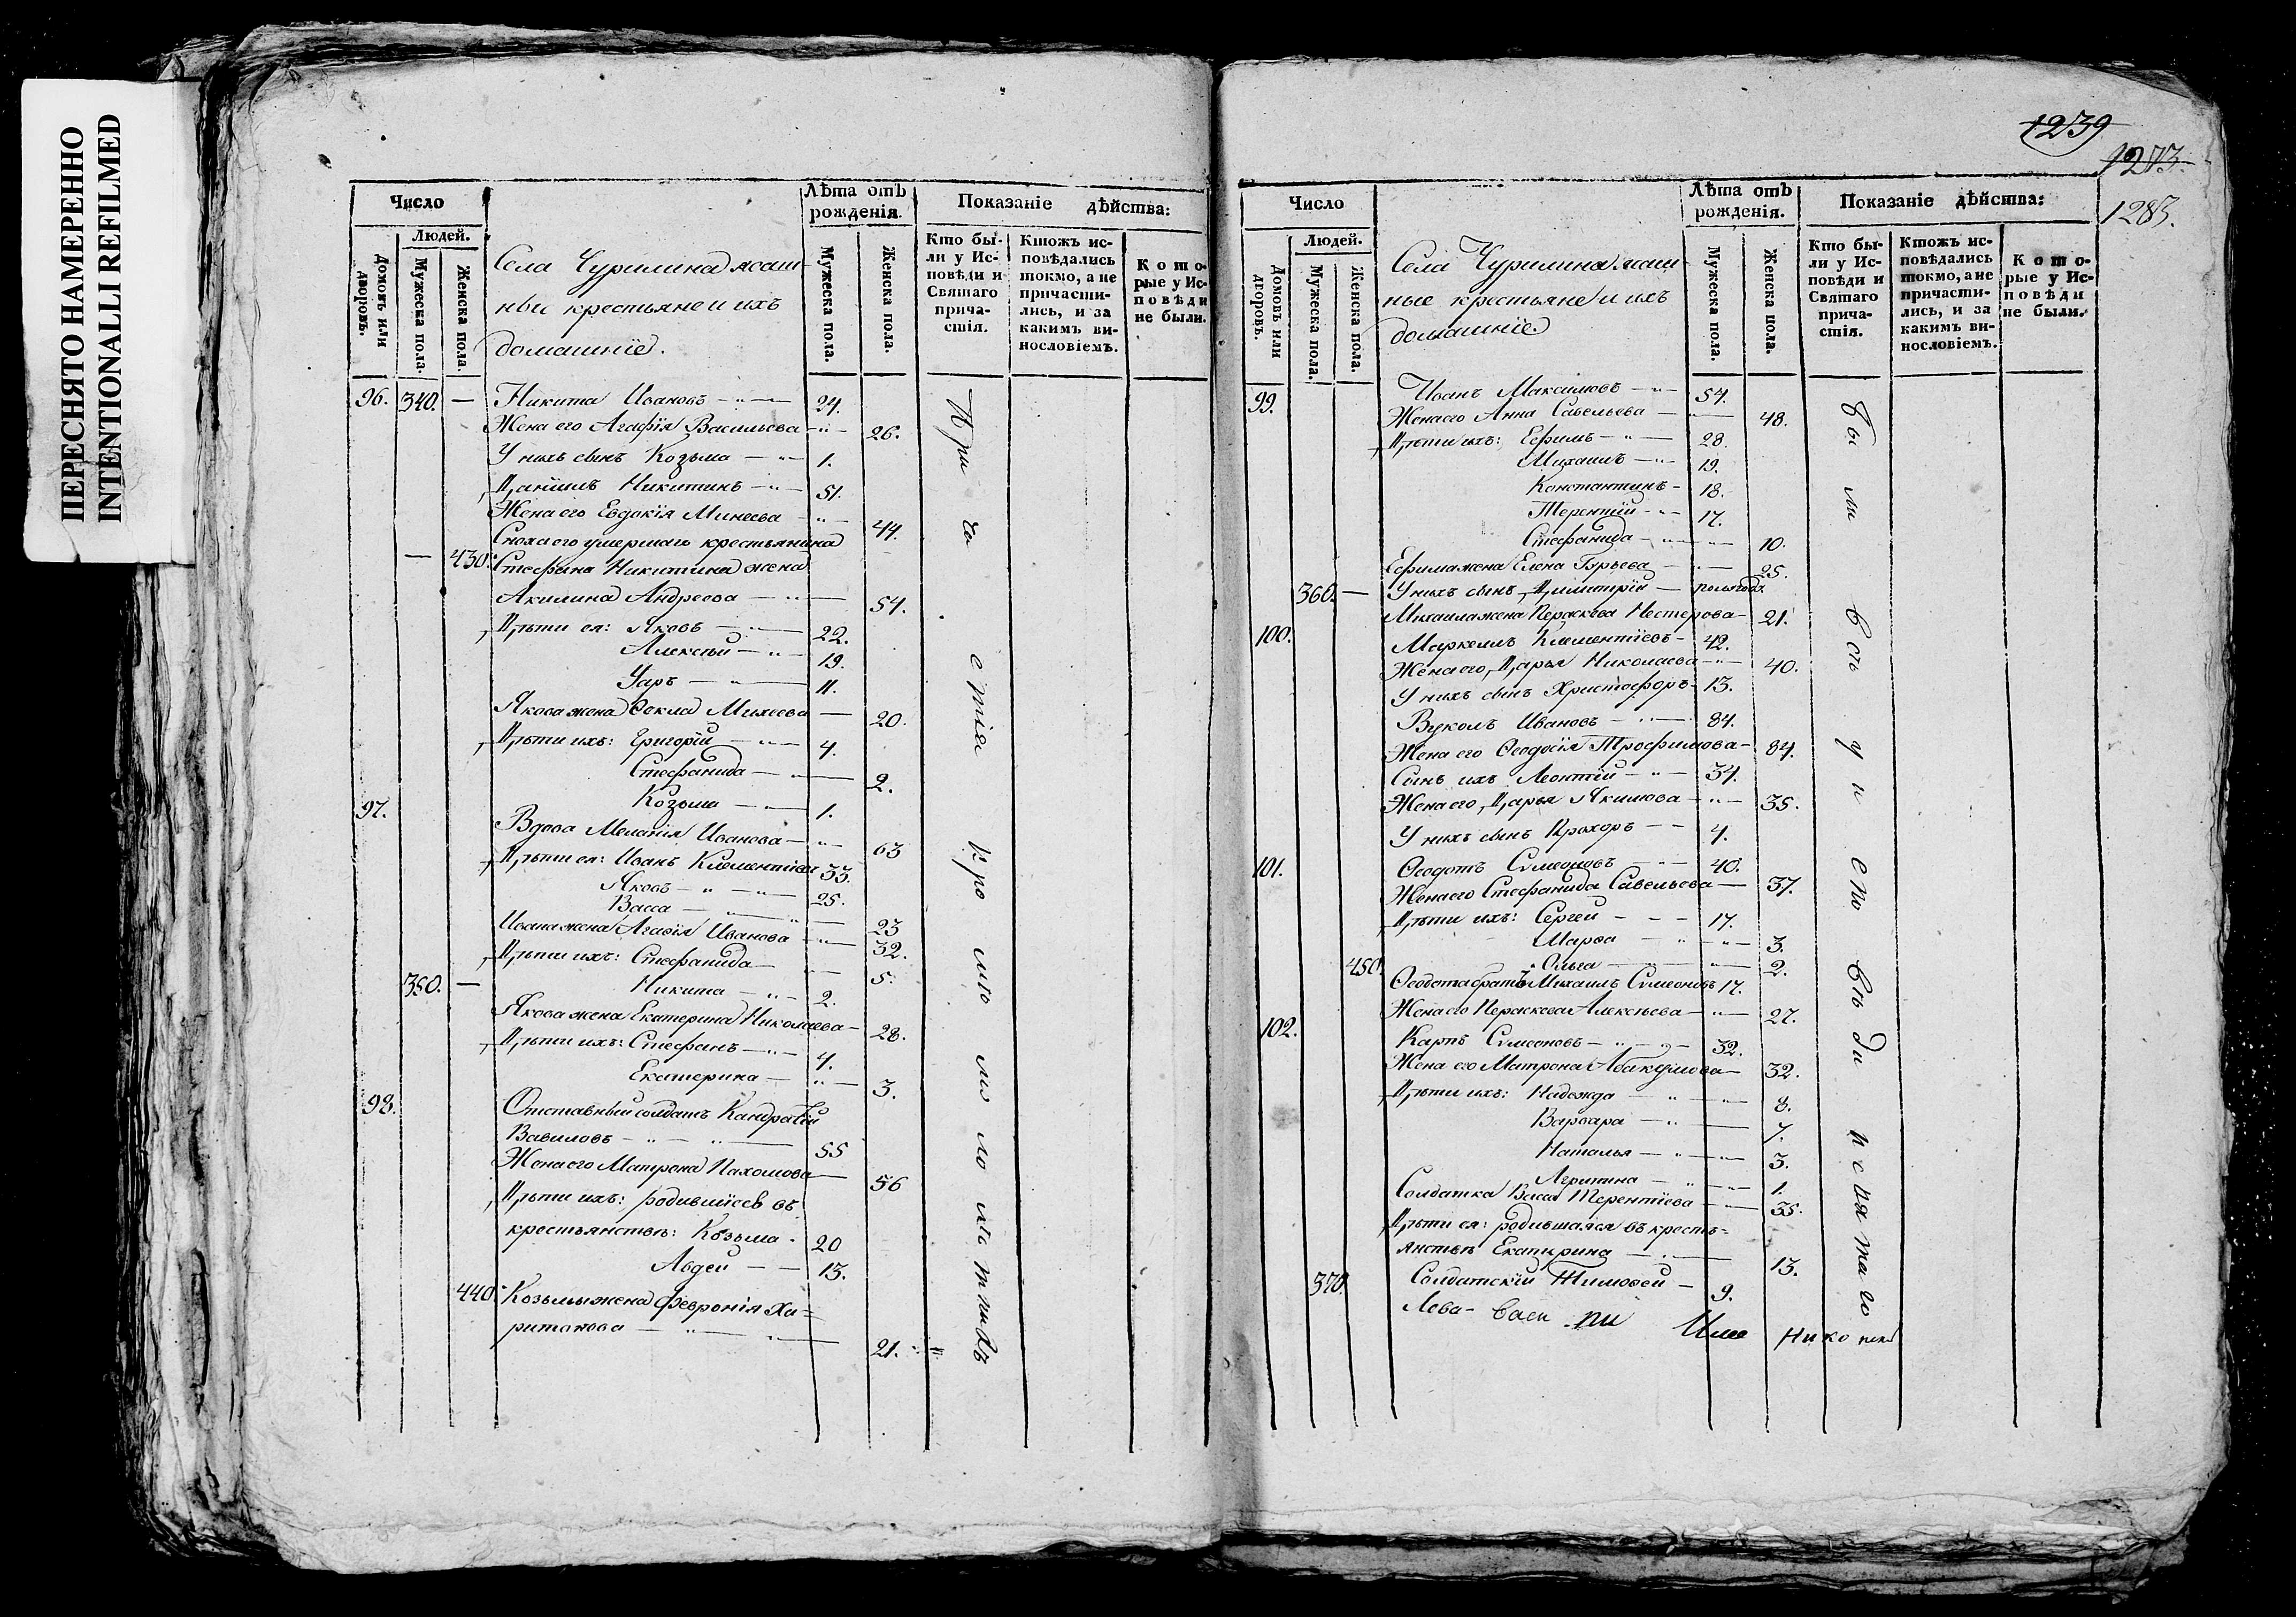 ПЕРЕСНЯТО НАМЕРЕННО
INTENTIONALLI REFILMED
Число
Людей.
Домовъ или дворовъ.
Мужеска пола.
Женска пола.
Села Чурилина ясаш-
ные крестьяне и ихъ
домашніе.
Лѣта отъ рожденія.
Мужеска пола.
Женска пола.
Показаніе дѣйства:
Кто бы-
ли у Ис-
повѣди и
Святаго
прича-
стія.
Ктожъ ис-
повѣдались
токмо, а не
причасти-
лись, и за
какимъ ви-
нословіемъ.
Кото-
рые у Ис-
повѣди
не были.
96. 340. — Никита Ивановъ 24.
Жена его Агафія Васильева 26.
У нихъ сынъ Козьма 1.
Даніилъ Никитинъ 51.
Жена его Евдокія Минеева 44.
Сноха его умершаго крестьянина
— 430. Стефана Никитина жена
Акилина Андреева 54.
Дѣти ея: Яковъ 22.
Алексѣй 19.
Уаръ 11.
Якова жена Ѳекла Михеева 20.
Дѣти ихъ: Григорій 4.
Стефанида 2.
Козьма 1.
97. Вдова Меланія Иванова 63
Дѣти ея: Иванъ Клементіевъ 33.
Яковъ 25.
Васса 23
Ивана жена Агафія Иванова 32.
Дѣти ихъ: Стефанида 5.
350. — Никита 2.
Якова жена Екатерина Николаева 28.
Дѣти ихъ: Стефанъ 4.
Екатерина 3.
98. Отставный солдатъ Кандратій
Вавиловъ 55
Жена его Матрона Пахомова 56
Дѣти ихъ: родившіеся въ
крестьянствѣ: Козьма 20
Авдей 13.
440. Козьмы жена Февронія Ха-
ритонова 21.
1239
1273.
1283.
Число
Людей.
Домовъ или дворовъ.
Мужеска пола.
Женска пола.
Села Чурилина ясаш-
ные крестьяне и ихъ
домашніе.
Лѣта отъ рожденія.
Мужеска пола.
Женска пола.
Показаніе дѣйства:
Кто бы-
ли у Ис-
повѣди и
Святаго
прича-
стія.
Ктожъ ис-
повѣдались
токмо, а не
причасти-
лись, и за
какимъ ви-
нословіемъ.
Кото-
рые у Ис-
повѣди
не были.
99. Иванъ Максимовъ 54.
Жена его Анна Савельева 48.
Дѣти ихъ: Ефимъ 28.
Михаилъ 19.
Константинъ 18.
Терентій 17.
Стефанида 10.
Ефима жена Елена Гурьева 25.
360. — У нихъ сынъ Димитрій полгода.
Михаила жена Параскева Нестерова 21.
100. Маркеллъ Клементіевъ 42.
Жена его Дарья Николаева 40.
У нихъ сынъ Христофоръ 13.
Вуколъ Ивановъ 84.
Жена его Ѳеодосія Трофимова 84.
Сынъ ихъ Леонтій 34.
Жена его Дарья Якимова 35.
У нихъ сынъ Прохоръ 4.
101. Ѳеодотъ Сѵмеоновъ 40.
Жена его Стефанида Савельева 37.
Дѣти ихъ: Сергей 17.
Марѳа 3.
450. Ольга 2.
Ѳеодота братъ Михаилъ Сѵмеоновъ 17.
Жена его Параскева Алексѣева 27.
102. Карпъ Сѵмеоновъ 32.
Жена его Матрона Абакумова 32.
Дѣти ихъ: Надежда 8.
Варвара 7.
Наталья 3.
Агрипина 1.
Солдатка Васса Терентіева 35.
Дѣти ея: родившаяся въ кресть-
янствѣ Екатерина 13.
370. Солдатскій Тимоѳей 9.